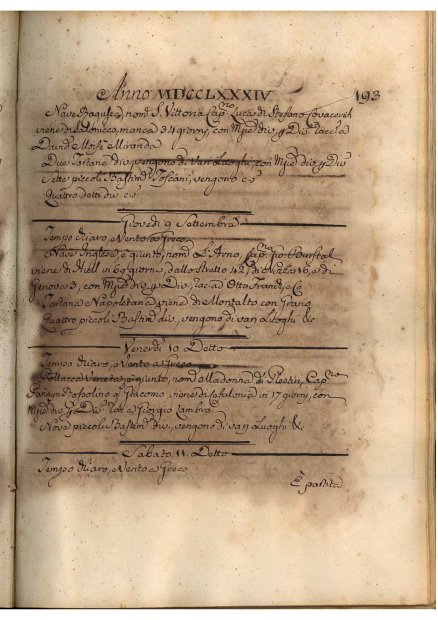 Anno MDCCLXXXIV 193
Nave Ragusea, nom.ᵃ S. Vittoria Cap.ⁿᵒ Luca di Stefano Covacevich
viene di Salonicco, manca 34 giorni, con M.ᵉ div.ᵉ p Div.ⁱ racc.ᵃ a
David e Moisè Miranda
Due Tartane div.ᵉ, vengono di varj Luoghi, con M.ᵉ div.ᵉ p Div.ⁱ
Sette piccoli Bastim.ⁱ Toscani, vengono
Quattro detti div.ⁱ
Giovedi 9 Settembre
Tempo chiaro, e Vento a Greco
Nave Inglese, è giunta, nom.ᵃ L'Arno, Cap.ⁿᵒ
viene di Hull in 69 giorni, dallo Stretto 42, di 16, e di
Genova 3, con M.ᵉ div.ᵉ p Div.ⁱ, racc.ᵃ a Otto Frank, e C.
Tartana Napoletana, viene di Montalto con Grano
Quattro piccoli Bastim.ⁱ div.ⁱ, vengono di varj Luoghi &c
Venerdi 10 Detto
Tempo chiaro, e Vento a Greco
Pollacca Veneta, è giunta, nom.ᵃ Madonna di Cap.ⁿᵒ
q Giacomo viene di Cefalonia in 17 giorni, con
M.ᵉ div.ᵉ p Div.ⁱ racc.ᵃ a Giorgio Lambro
Nove piccoli Bastim.ⁱ div.ⁱ, vengono di varj Luoghi &c
Sabato 11 Detto
Tempo chiaro, e Vento a Greco
È partita